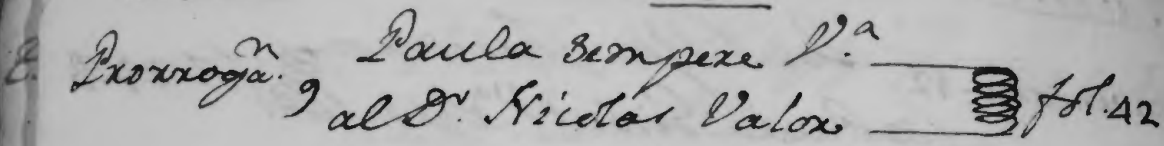 Prorrogan. Paula Sempere V.a
al Dr. Nicolas Valor fol. 42